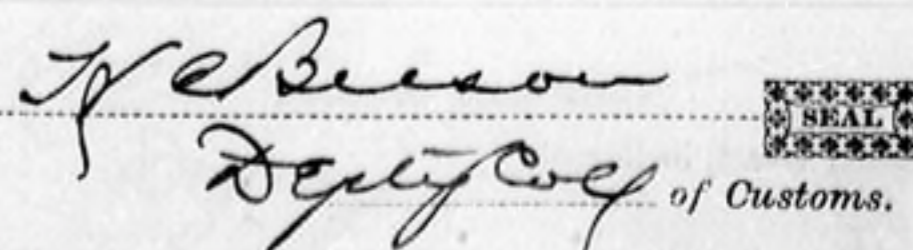 H C Beeson SEAL
Depty Coll of Customs.